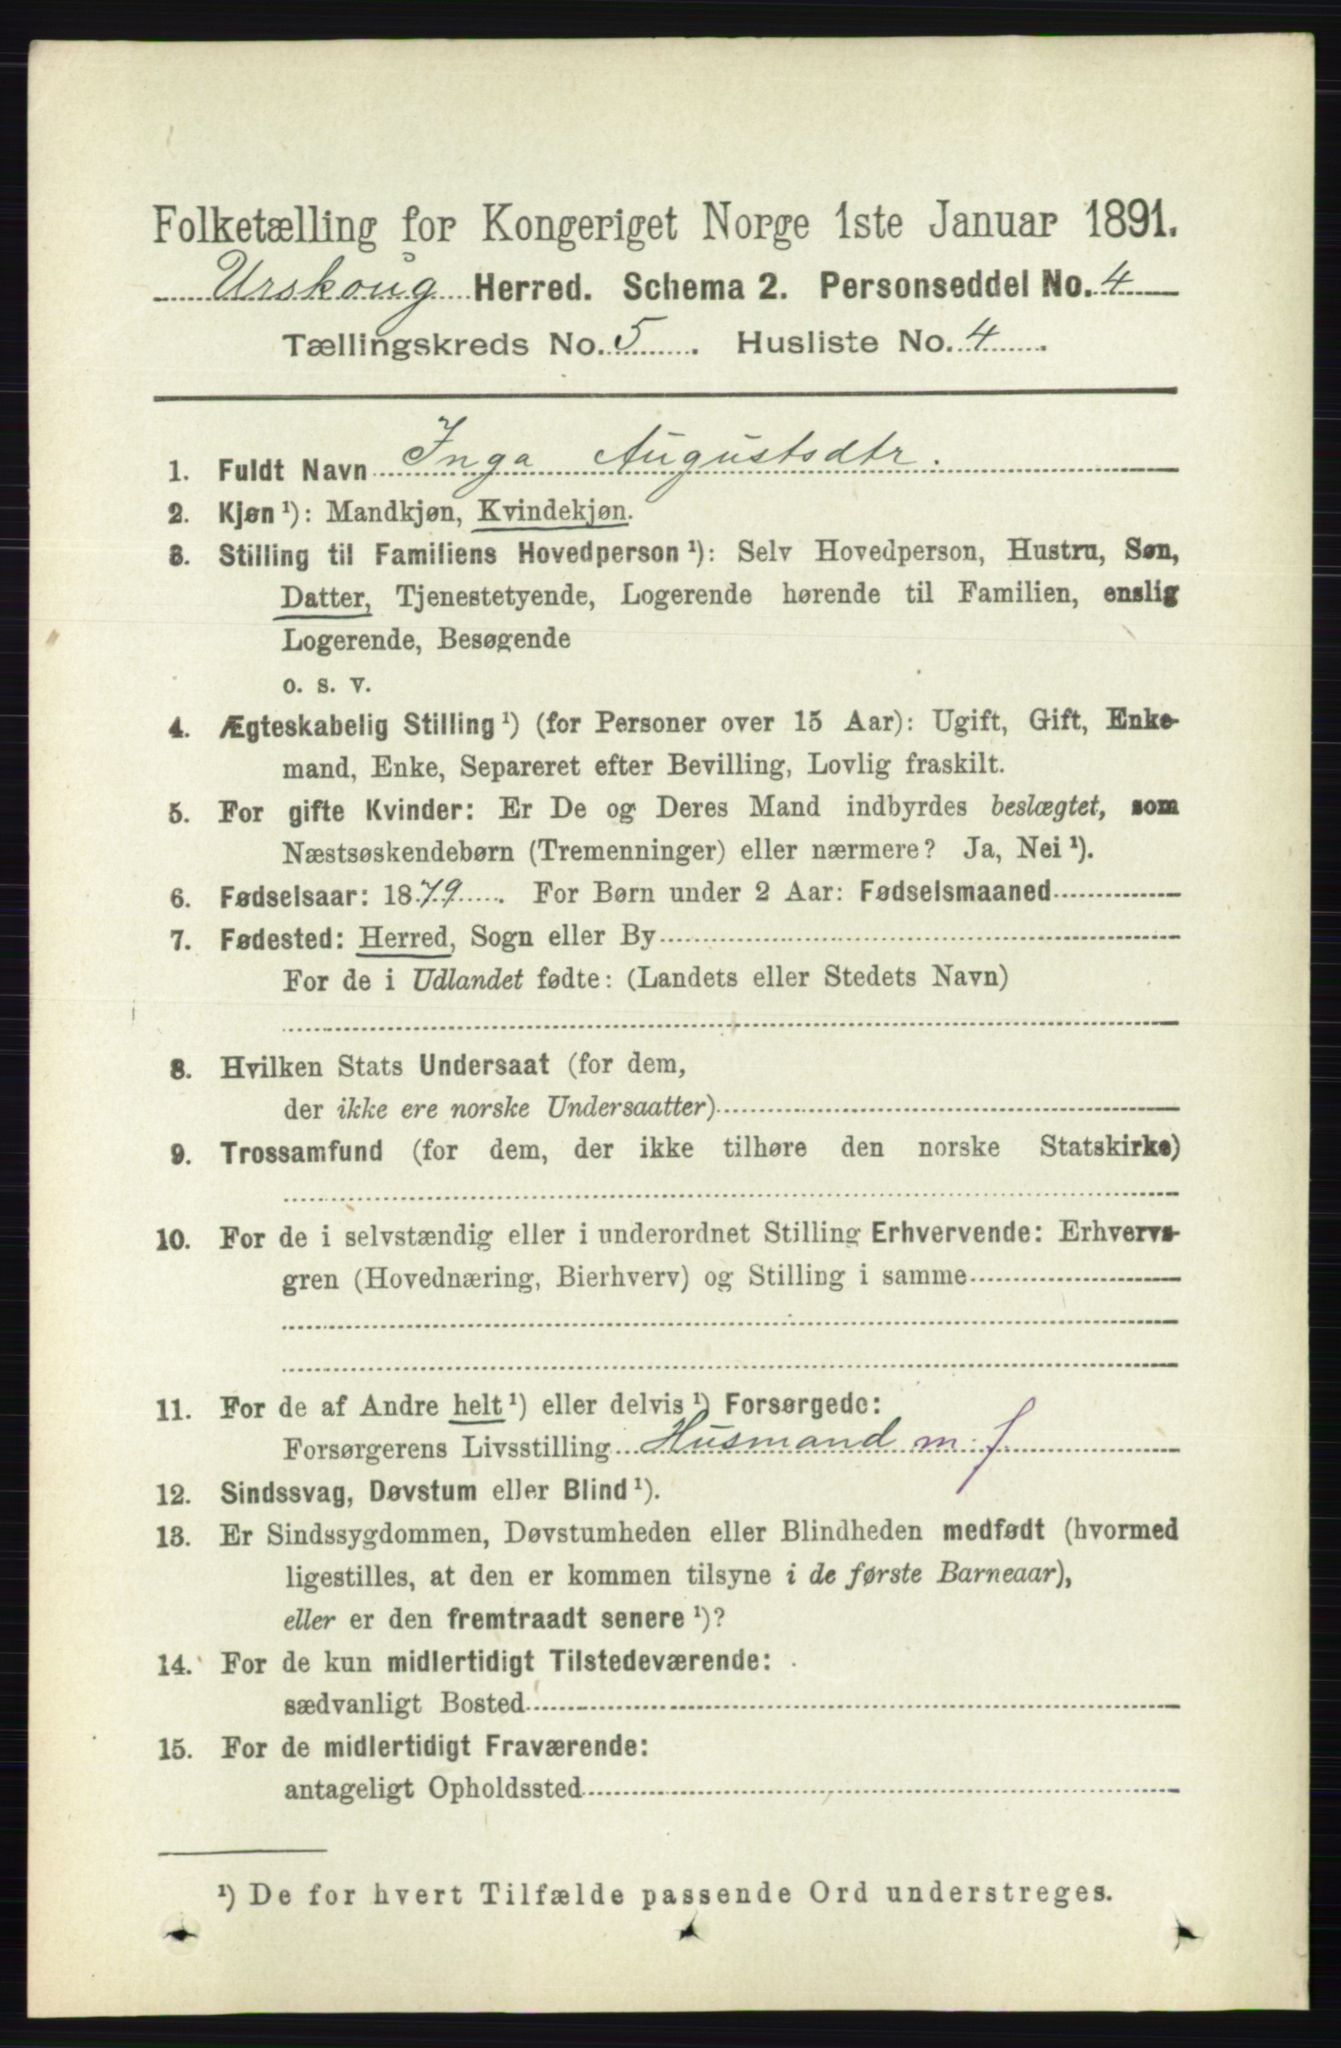 Folketælling for Kongeriget Norge 1ste Januar 1891.
Urskoug Herred. Schema 2. Personseddel No. 4
Tællingskreds No. 5. Husliste No. 4.
1. Fuldt Navn Inga Augustsdtr.
2. Kjøn ¹): Mandkjøn, Kvindekjøn.
3. Stilling til Familiens Hovedperson ¹): Selv Hovedperson, Hustru, Søn,
Datter, Tjenestetyende, Logerende hørende til Familien, enslig
Logerende, Besøgende
o. s. v.
4. Ægteskabelig Stilling ¹) (for Personer over 15 Aar): Ugift, Gift, Enke-
mand, Enke, Separeret efter Bevilling, Lovlig fraskilt.
5. For gifte Kvinder: Er De og Deres Mand indbyrdes beslægtet, som
Næstsøskendebørn (Tremenninger) eller nærmere? Ja, Nei ¹).
6. Fødselsaar: 1879. For Børn under 2 Aar: Fødselsmaaned
7. Fødested: Herred, Sogn eller By
For de i Udlandet fødte: (Landets eller Stedets Navn)
8. Hvilken Stats Undersaat (for dem,
der ikke ere norske Undersaatter)
9. Trossamfund (for dem, der ikke tilhøre den norske Statskirke)
10. For de i selvstændig eller i underordnet Stilling Erhvervende: Erhvervs-
gren (Hovednæring, Bierhverv) og Stilling i samme
11. For de af Andre helt ¹) eller delvis ¹) Forsørgede:
Forsørgerens Livsstilling Husmand m. j
12. Sindssvag, Døvstum eller Blind ¹).
13. Er Sindssygdommen, Døvstumheden eller Blindheden medfødt (hvormed
ligestilles, at den er kommen tilsyne i de første Barneaar),
eller er den fremtraadt senere ¹)?
14. For de kun midlertidigt Tilstedeværende:
sædvanligt Bosted
15. For de midlertidigt Fraværende:
antageligt Opholdssted
¹) De for hvert Tilfælde passende Ord understreges.